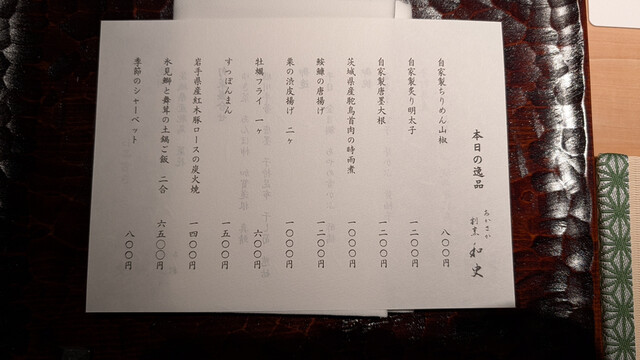 本日の逸品
おいさい
割烹 和史
自家製ちりめん山椒 八〇〇円
自家製炙り明太子 一二〇〇円
自家製唐墨大根 一二〇〇円
茨城県産鴕鳥首肉の時雨煮 一〇〇〇円
鮟鱇の唐揚げ 一二〇〇円
栗の渋皮揚げ 二ヶ 一〇〇〇円
牡蠣フライ 一ヶ 六〇〇円
すっぽんまん 一五〇〇円
岩手県産紅木豚ロースの炭火焼 一四〇〇円
氷見鰤と舞茸の土鍋ご飯 二合 六五〇〇円
季節のシャーベット 八〇〇円